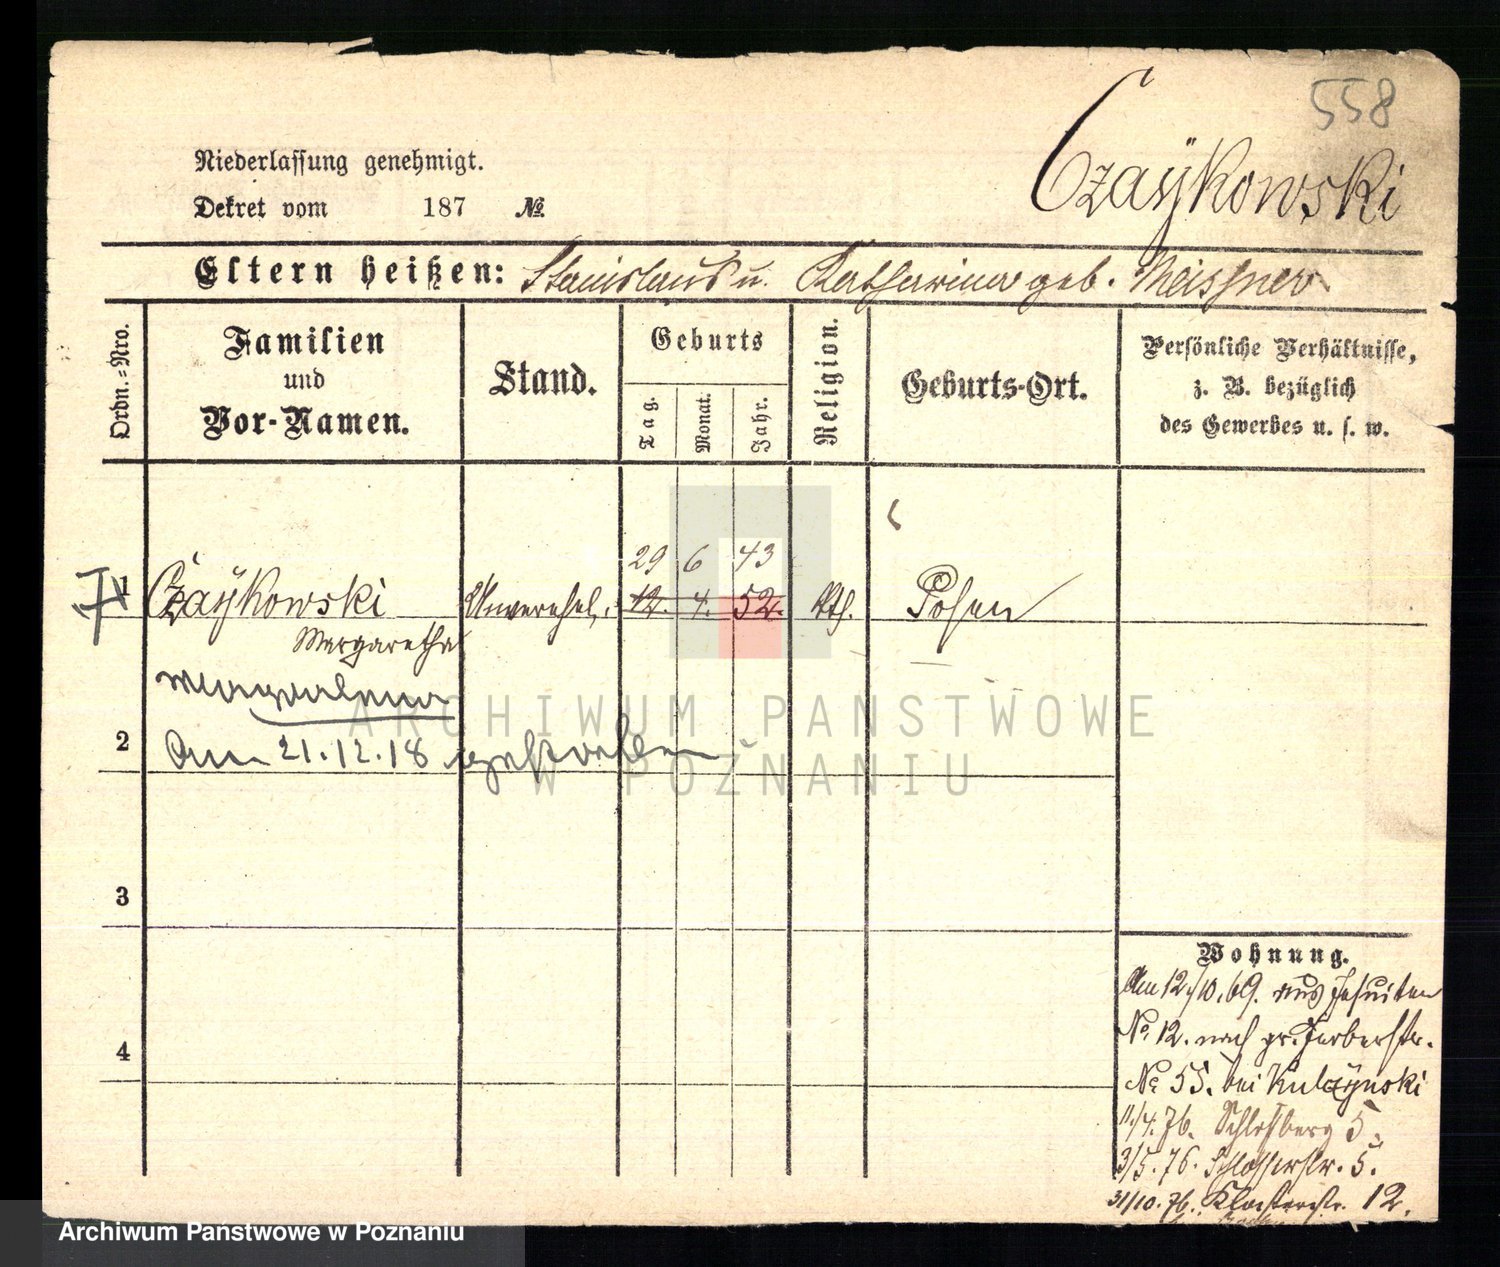 558
Czaÿkowski
Niederlassung genehmigt.
Dekret vom 187 №
Eltern heißen: Stanislaus u. Katharina geb. Meissner
Ordn.-Nro.
Familien
und
Vor-Namen.
Stand.
Geburts
Tag.
Monat.
Jahr.
Religion.
Geburts-Ort.
Persönliche Verhältnisse,
z. B. bezüglich
des Gewerbes u. s. w.
29 6 43
1 Czaÿkowski Unverehel. 12. 4. 52. Kth. Posen
Margaretha
Magdalena
2 Am 21.12.18 gestorben
3
4
Wohnung.
Am 12./10. 69. aus Jesuiten
No. 12. nach gr. Gerberstr.
No 55. bei Kulczÿnski
11./4. 76. Schloßberg 5.
3/5. 76. Schlosserstr. 5.
31/10. 76. Klosterstr. 12.
ARCHIWUM PAŃSTWOWE
W POZNANIU
Archiwum Państwowe w Poznaniu